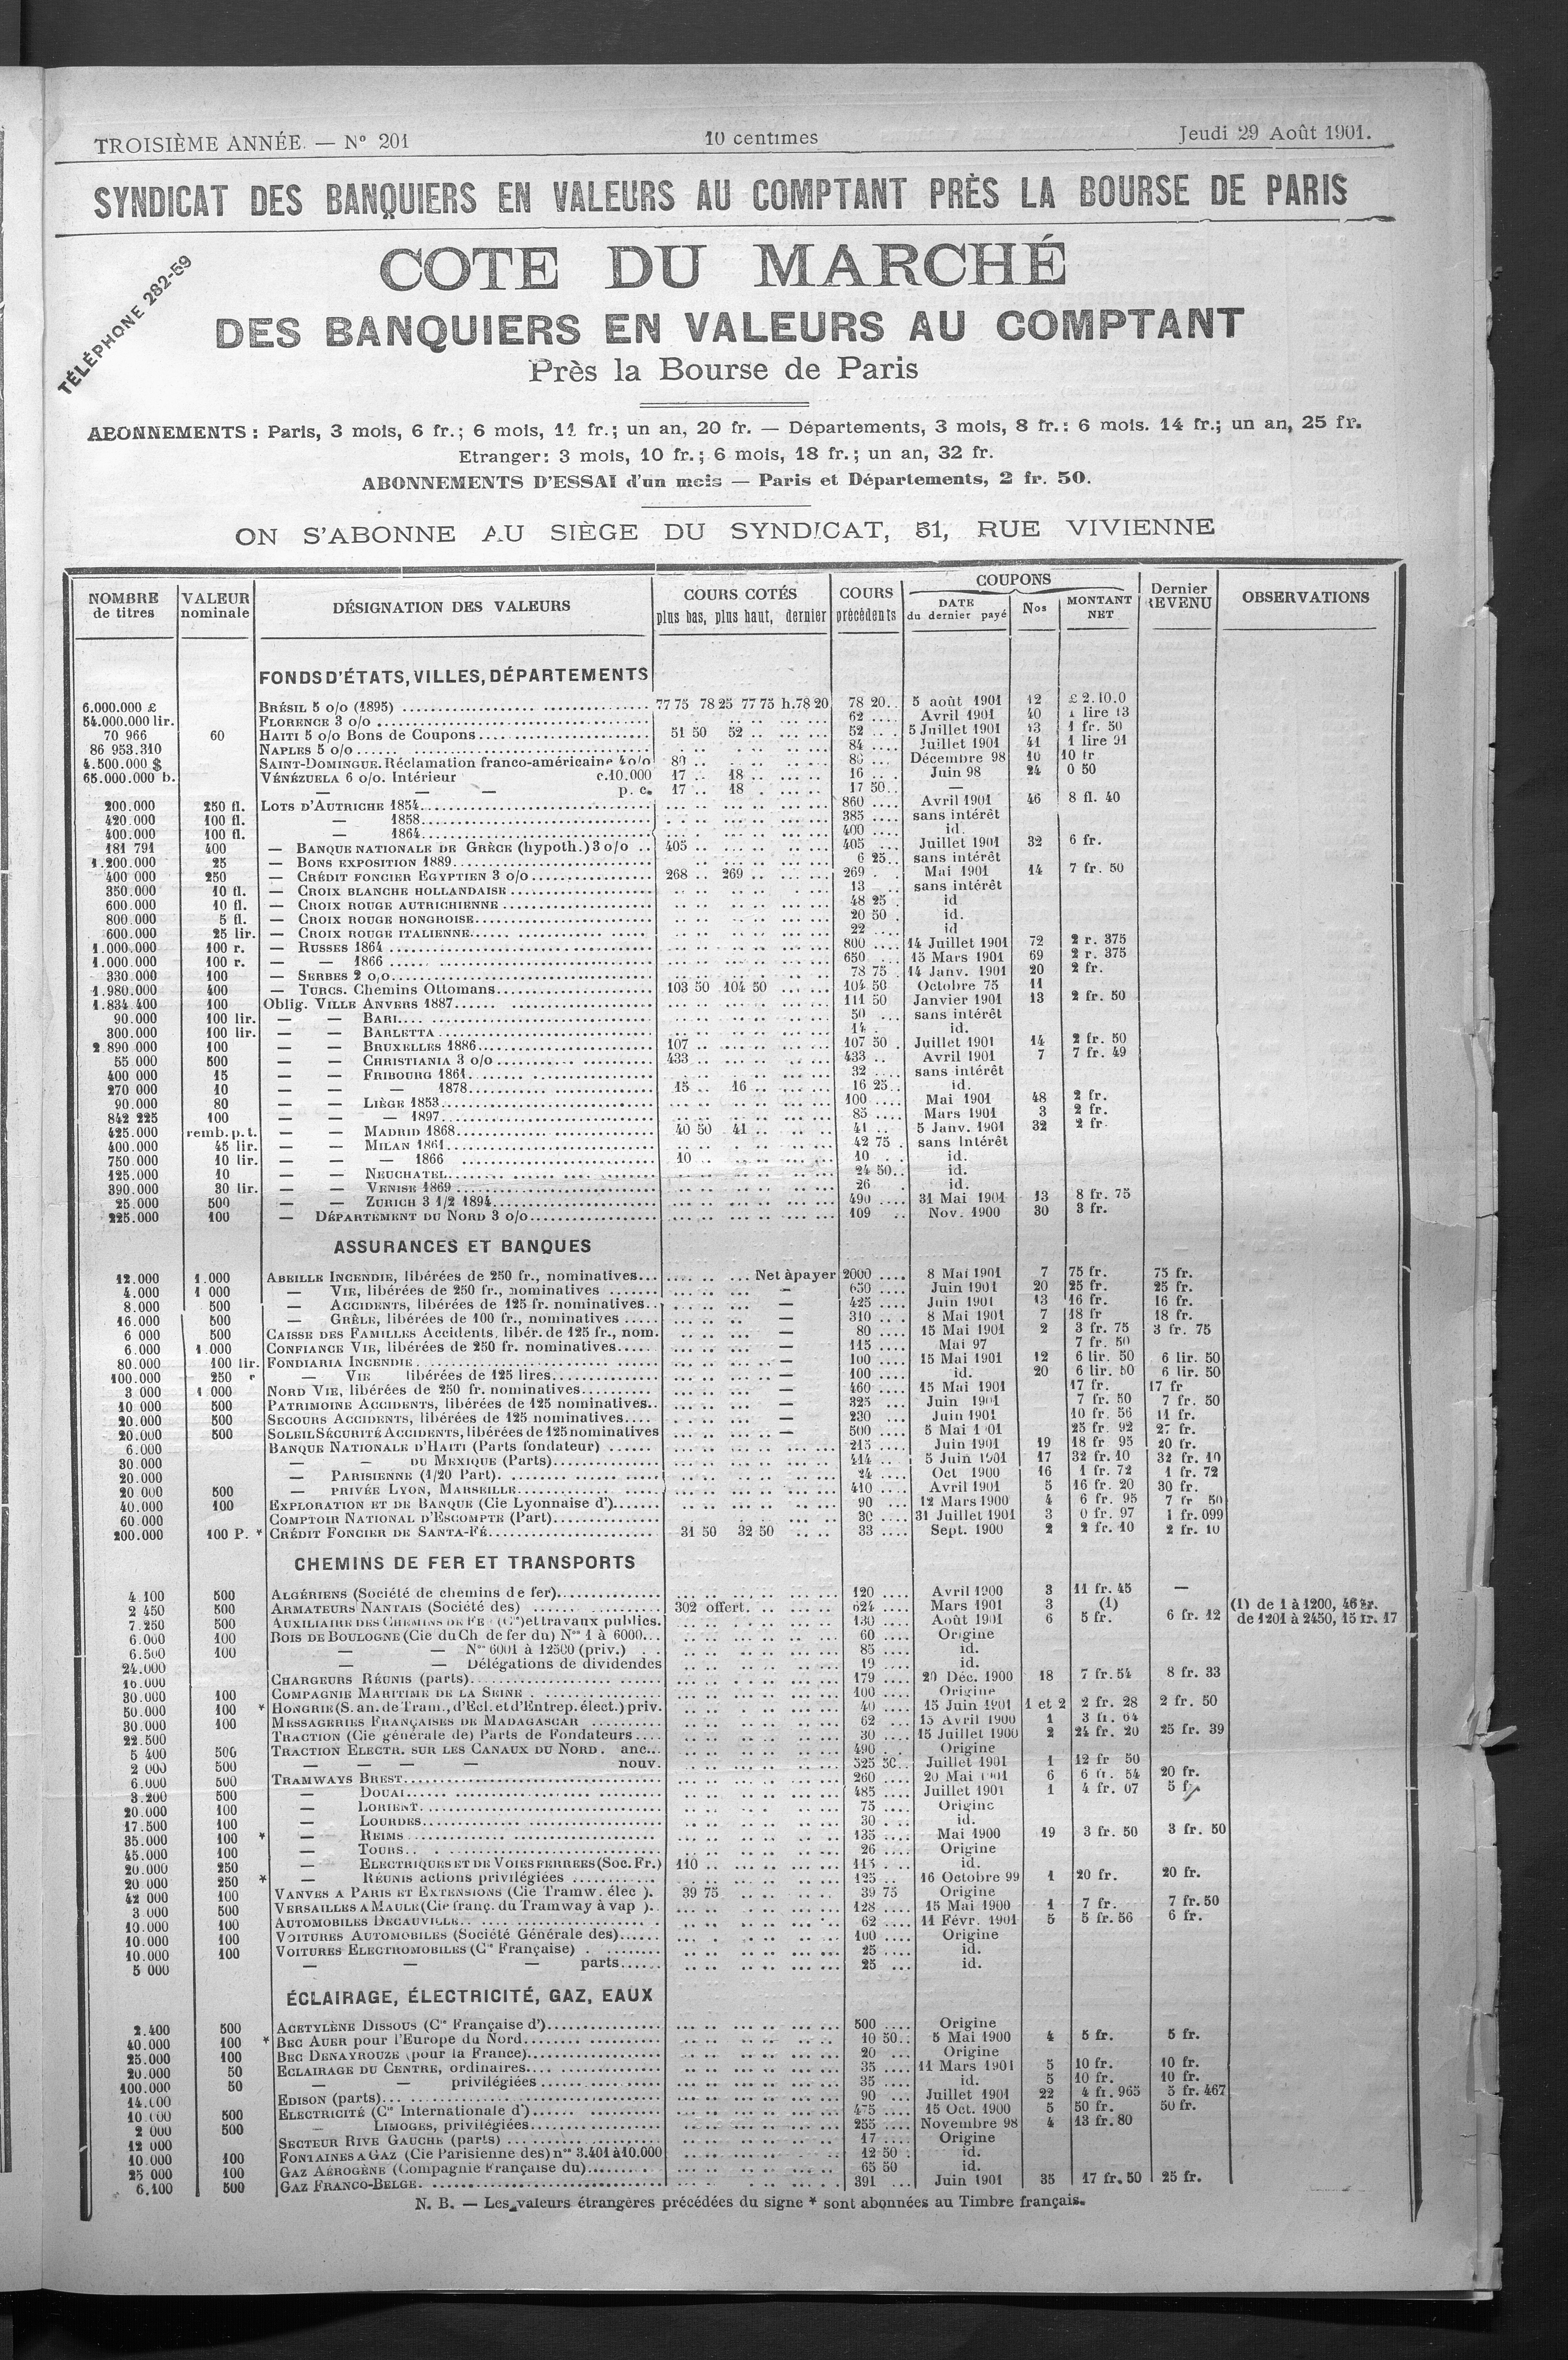 TROISIÈME ANNÉE. — Nº 201 10 centimes Jeudi 29 Août 1901.
SYNDICAT DES BANQUIERS EN VALEURS AU COMPTANT PRÈS LA BOURSE DE PARIS
TÉLÉPHONE 282-59
COTE DU MARCHÉ
DES BANQUIERS EN VALEURS AU COMPTANT
Près la Bourse de Paris
ABONNEMENTS : Paris, 3 mois, 6 fr.; 6 mois, 11 fr.; un an, 20 fr. — Départements, 3 mois, 8 fr.: 6 mois. 14 fr.; un an, 25 fr.
Etranger: 3 mois, 10 fr.; 6 mois, 18 fr.; un an, 32 fr.
ABONNEMENTS D'ESSAI d'un mois — Paris et Départements, 2 fr. 50.
ON S'ABONNE AU SIÈGE DU SYNDICAT, 31, RUE VIVIENNE
NOMBRE de titres VALEUR nominale DÉSIGNATION DES VALEURS COURS COTÉS plus bas, plus haut, dernier COURS précédents COUPONS DATE du dernier payé Nos MONTANT NET Dernier REVENU OBSERVATIONS
FONDS D'ÉTATS, VILLES, DÉPARTEMENTS
6.000.000 £ BRÉSIL 5 o/o (1895) 77 75 78 25 77 75 h.78 20 78 20 5 août 1901 12 £ 2.10.0
54.000.000 lir. FLORENCE 3 o/o 62 Avril 1901 40 1 lire 13
70 966 60 HAITI 5 o/o Bons de Coupons 51 50 52 52 5 Juillet 1901 13 1 fr. 50
86 953.310 NAPLES 5 o/o 84 Juillet 1901 41 1 lire 91
4.500.000 $ SAINT-DOMINGUE. Réclamation franco-américaine 4 o/o 80 80 Décembre 98 10 10 fr
65.000.000 b. VÉNÉZUELA 6 o/o. Intérieur c.10.000 17 18 16 Juin 98 24 0 50
— — — p. c. 17 18 17 50 —
200.000 250 fl. LOTS D'AUTRICHE 1854 860 Avril 1901 46 8 fl. 40
420.000 100 fl. — 1858 385 sans intérêt
400.000 100 fl. — 1864 400 id.
181 791 400 — BANQUE NATIONALE DE GRÈCE (hypoth.) 3 o/o 405 405 Juillet 1901 32 6 fr.
1.200.000 25 — BONS EXPOSITION 1889 6 25 sans intérêt
400 000 250 — CRÉDIT FONCIER EGYPTIEN 3 o/o 268 269 269 Mai 1901 14 7 fr. 50
350.000 10 fl. — CROIX BLANCHE HOLLANDAISE 13 sans intérêt
600.000 10 fl. — CROIX ROUGE AUTRICHIENNE 48 25 id
800.000 5 fl. — CROIX ROUGE HONGROISE 20 50 id.
600.000 25 lir. — CROIX ROUGE ITALIENNE 22 id
1.000.000 100 r. — RUSSES 1864 800 14 Juillet 1901 72 2 r. 375
1.000.000 100 r. — — 1866 650 15 Mars 1901 69 2 r. 375
330.000 100 — SERBES 2 o/o 78 75 14 Janv. 1901 20 2 fr.
1.980.000 400 — TURCS. Chemins Ottomans 103 50 104 50 104 50 Octobre 75 11
1.834 400 100 Oblig. VILLE ANVERS 1887 111 50 Janvier 1901 13 2 fr. 50
90.000 100 lir. — — BARI 50 sans intérêt
300.000 100 lir. — — BARLETTA 14 id.
2.890 000 100 — — BRUXELLES 1886 107 107 50 Juillet 1901 14 2 fr. 50
55 000 500 — — CHRISTIANIA 3 o/o 433 433 Avril 1901 7 7 fr. 49
400 000 15 — — FRIBOURG 1861 32 sans intérêt
270 000 10 — — — 1878 15 16 16 25 id.
90.000 80 — — LIÈGE 1853 100 Mai 1901 48 2 fr.
842 225 100 — — — 1897 85 Mars 1901 3 2 fr.
425.000 remb. p.t. — — MADRID 1868 40 50 41 41 5 Janv. 1901 32 2 fr.
400.000 45 lir. — — MILAN 1861 42 75 sans Intérêt
750.000 10 lir. — — — 1866 10 10 id.
125.000 10 — — NEUCHATEL 24 50 id.
390.000 30 lir. — — VENISE 1869 26 id.
25.000 500 — — ZURICH 3 1/2 1894 490 31 Mai 1901 13 8 fr. 75
225.000 100 — DÉPARTEMENT DU NORD 3 o/o 109 Nov. 1900 30 3 fr.
ASSURANCES ET BANQUES
12.000 1.000 ABEILLE INCENDIE, libérées de 250 fr., nominatives Net à payer 2000 8 Mai 1901 7 75 fr. 75 fr.
4.000 1 000 — VIE, libérées de 250 fr., nominatives — 650 Juin 1901 20 25 fr. 25 fr.
8.000 500 — ACCIDENTS, libérées de 125 fr. nominatives — 425 Juin 1901 13 16 fr. 16 fr.
16.000 500 — GRÊLE, libérées de 100 fr., nominatives — 310 8 Mai 1901 7 18 fr 18 fr.
6 000 500 CAISSE DES FAMILLES Accidents, libér. de 125 fr., nom. — 80 15 Mai 1901 2 3 fr. 75 3 fr. 75
6.000 1.000 CONFIANCE VIE, libérées de 250 fr. nominatives — 115 Mai 97 7 fr. 50
80.000 100 lir. FONDIARIA INCENDIE — 100 15 Mai 1901 12 6 lir. 50 6 lir. 50
100.000 250 — VIE libérées de 125 lires — 100 id. 20 6 lir. 50 6 lir. 50
3 000 1 000 NORD VIE, libérées de 250 fr. nominatives — 460 15 Mai 1901 17 fr. 17 fr
10 000 500 PATRIMOINE ACCIDENTS, libérées de 125 nominatives — 325 Juin 1901 7 fr. 50 7 fr. 50
20.000 500 SECOURS ACCIDENTS, libérées de 125 nominatives — 230 Juin 1901 10 fr. 56 11 fr.
20.000 500 SOLEIL SÉCURITÉ ACCIDENTS, libérées de 125 nominatives — 500 5 Mai 1 01 25 fr. 92 27 fr.
6.000 BANQUE NATIONALE D'HAITI (Parts fondateur) 215 Juin 1901 19 18 fr 95 20 fr.
30.000 — — DU MEXIQUE (Parts) 414 5 Juin 1901 17 32 fr. 10 32 fr. 10
20.000 — PARISIENNE (1/20 Part) 24 Oct 1900 16 1 fr. 72 1 fr. 72
20 000 500 — PRIVÉE LYON, MARSEILLE 410 Avril 1901 5 16 fr. 20 30 fr.
40.000 100 EXPLORATION ET DE BANQUE (Cie Lyonnaise d') 90 12 Mars 1900 4 6 fr. 95 7 fr 50
60.000 COMPTOIR NATIONAL D'ESCOMPTE (Part) 30 31 Juillet 1901 3 0 fr. 97 1 fr. 099
200.000 100 P. * CRÉDIT FONCIER DE SANTA-FÉ 31 50 32 50 33 Sept. 1900 2 2 fr. 10 2 fr. 10
CHEMINS DE FER ET TRANSPORTS
4.100 500 ALGÉRIENS (Société de chemins de fer) 120 Avril 1900 3 11 fr. 45 —
2 450 500 ARMATEURS NANTAIS (Société des) 302 offert. 624 Mars 1901 3 (1) (1) de 1 à 1200, 46 fr.
7.250 500 AUXILIAIRE DES CHEMINS DE FE (Cie) et travaux publics. 130 Août 1901 6 5 fr. 6 fr. 12 de 1201 à 2450, 15 fr. 17
6.000 100 BOIS DE BOULOGNE (Cie du Ch de fer du) Nos 1 à 6000 60 Origine
6.500 100 — — Nos 6001 à 12500 (priv.) 85 id.
24.000 — — Délégations de dividendes 19 id.
16.000 CHARGEURS RÉUNIS (parts) 179 20 Déc. 1900 18 7 fr. 54 8 fr. 33
30.000 100 COMPAGNIE MARITIME DE LA SEINE 100 Origine
50.000 100 * HONGRIE (S. an. de Tram., d'Ecl. et d'Entrep. élect.) priv. 40 15 Juin 1901 1 et 2 2 fr. 28 2 fr. 50
30.000 100 MESSAGERIES FRANÇAISES DE MADAGASCAR 62 15 Avril 1900 1 3 fr. 64
22.500 TRACTION (Cie générale de) Parts de Fondateurs 30 15 Juillet 1900 2 24 fr. 20 25 fr. 39
5 400 500 TRACTION ELECTR. SUR LES CANAUX DU NORD. anc. 490 Origine
2 000 500 — — — — nouv. 525 50 Juillet 1901 1 12 fr 50
6.000 500 TRAMWAYS BREST 260 20 Mai 1901 6 6 fr. 54 20 fr.
3.200 500 — DOUAI 485 Juillet 1901 1 4 fr. 07 5 fr
20.000 100 — LORIENT 75 Origine
17.500 100 — LOURDES 30 id.
35.000 100 * — REIMS 135 Mai 1900 19 3 fr. 50 3 fr. 50
45.000 100 — TOURS 26 Origine
20.000 250 — ELECTRIQUES ET DE VOIES FERREES (Soc. Fr.) 110 115 id.
20 000 250 * — RÉUNIS actions privilégiées 125 16 Octobre 99 1 20 fr. 20 fr.
42 000 100 VANVES A PARIS ET EXTENSIONS (Cie Tramw. élec ). 39 75 39 75 Origine
3 000 500 VERSAILLES A MAULE (Cie franç. du Tramway à vap ). 128 15 Mai 1900 1 7 fr. 7 fr. 50
10.000 100 AUTOMOBILES DECAUVILLE 62 11 Févr. 1901 5 5 fr. 56 6 fr.
10.000 100 VOITURES AUTOMOBILES (Société Générale des) 100 Origine
10.000 100 VOITURES ELECTROMOBILES (Cie Française) 25 id.
5 000 — — — parts 25 id.
ÉCLAIRAGE, ÉLECTRICITÉ, GAZ, EAUX
2.400 500 ACETYLÈNE DISSOUS (Cie Française d') 500 Origine
40.000 100 * BEC AUER pour l'Europe du Nord 10 50 5 Mai 1900 4 5 fr. 5 fr.
25.000 100 BEC DENAYROUZE (pour la France) 20 Origine
20.000 50 ECLAIRAGE DU CENTRE, ordinaires 35 11 Mars 1901 5 10 fr. 10 fr.
100.000 50 — — privilégiées 35 id. 5 10 fr. 10 fr.
14.000 EDISON (parts) 90 Juillet 1901 22 4 fr. 965 5 fr. 467
10 000 500 ELECTRICITÉ (Cie Internationale d') 475 15 Oct. 1900 5 50 fr. 50 fr.
2 000 500 — LIMOGES, privilégiées 255 Novembre 98 4 13 fr. 80
12 000 SECTEUR RIVE GAUCHE (parts) 17 Origine
10.000 100 FONTAINES A GAZ (Cie Parisienne des) nos 3.401 à 10.000 12 50 id.
25 000 100 GAZ AÉROGÈNE (Compagnie Française du) 65 50 id.
6.100 500 GAZ FRANCO-BELGE 391 Juin 1901 35 17 fr. 50 25 fr.
N. B. — Les valeurs étrangères précédées du signe * sont abonnées au Timbre français.